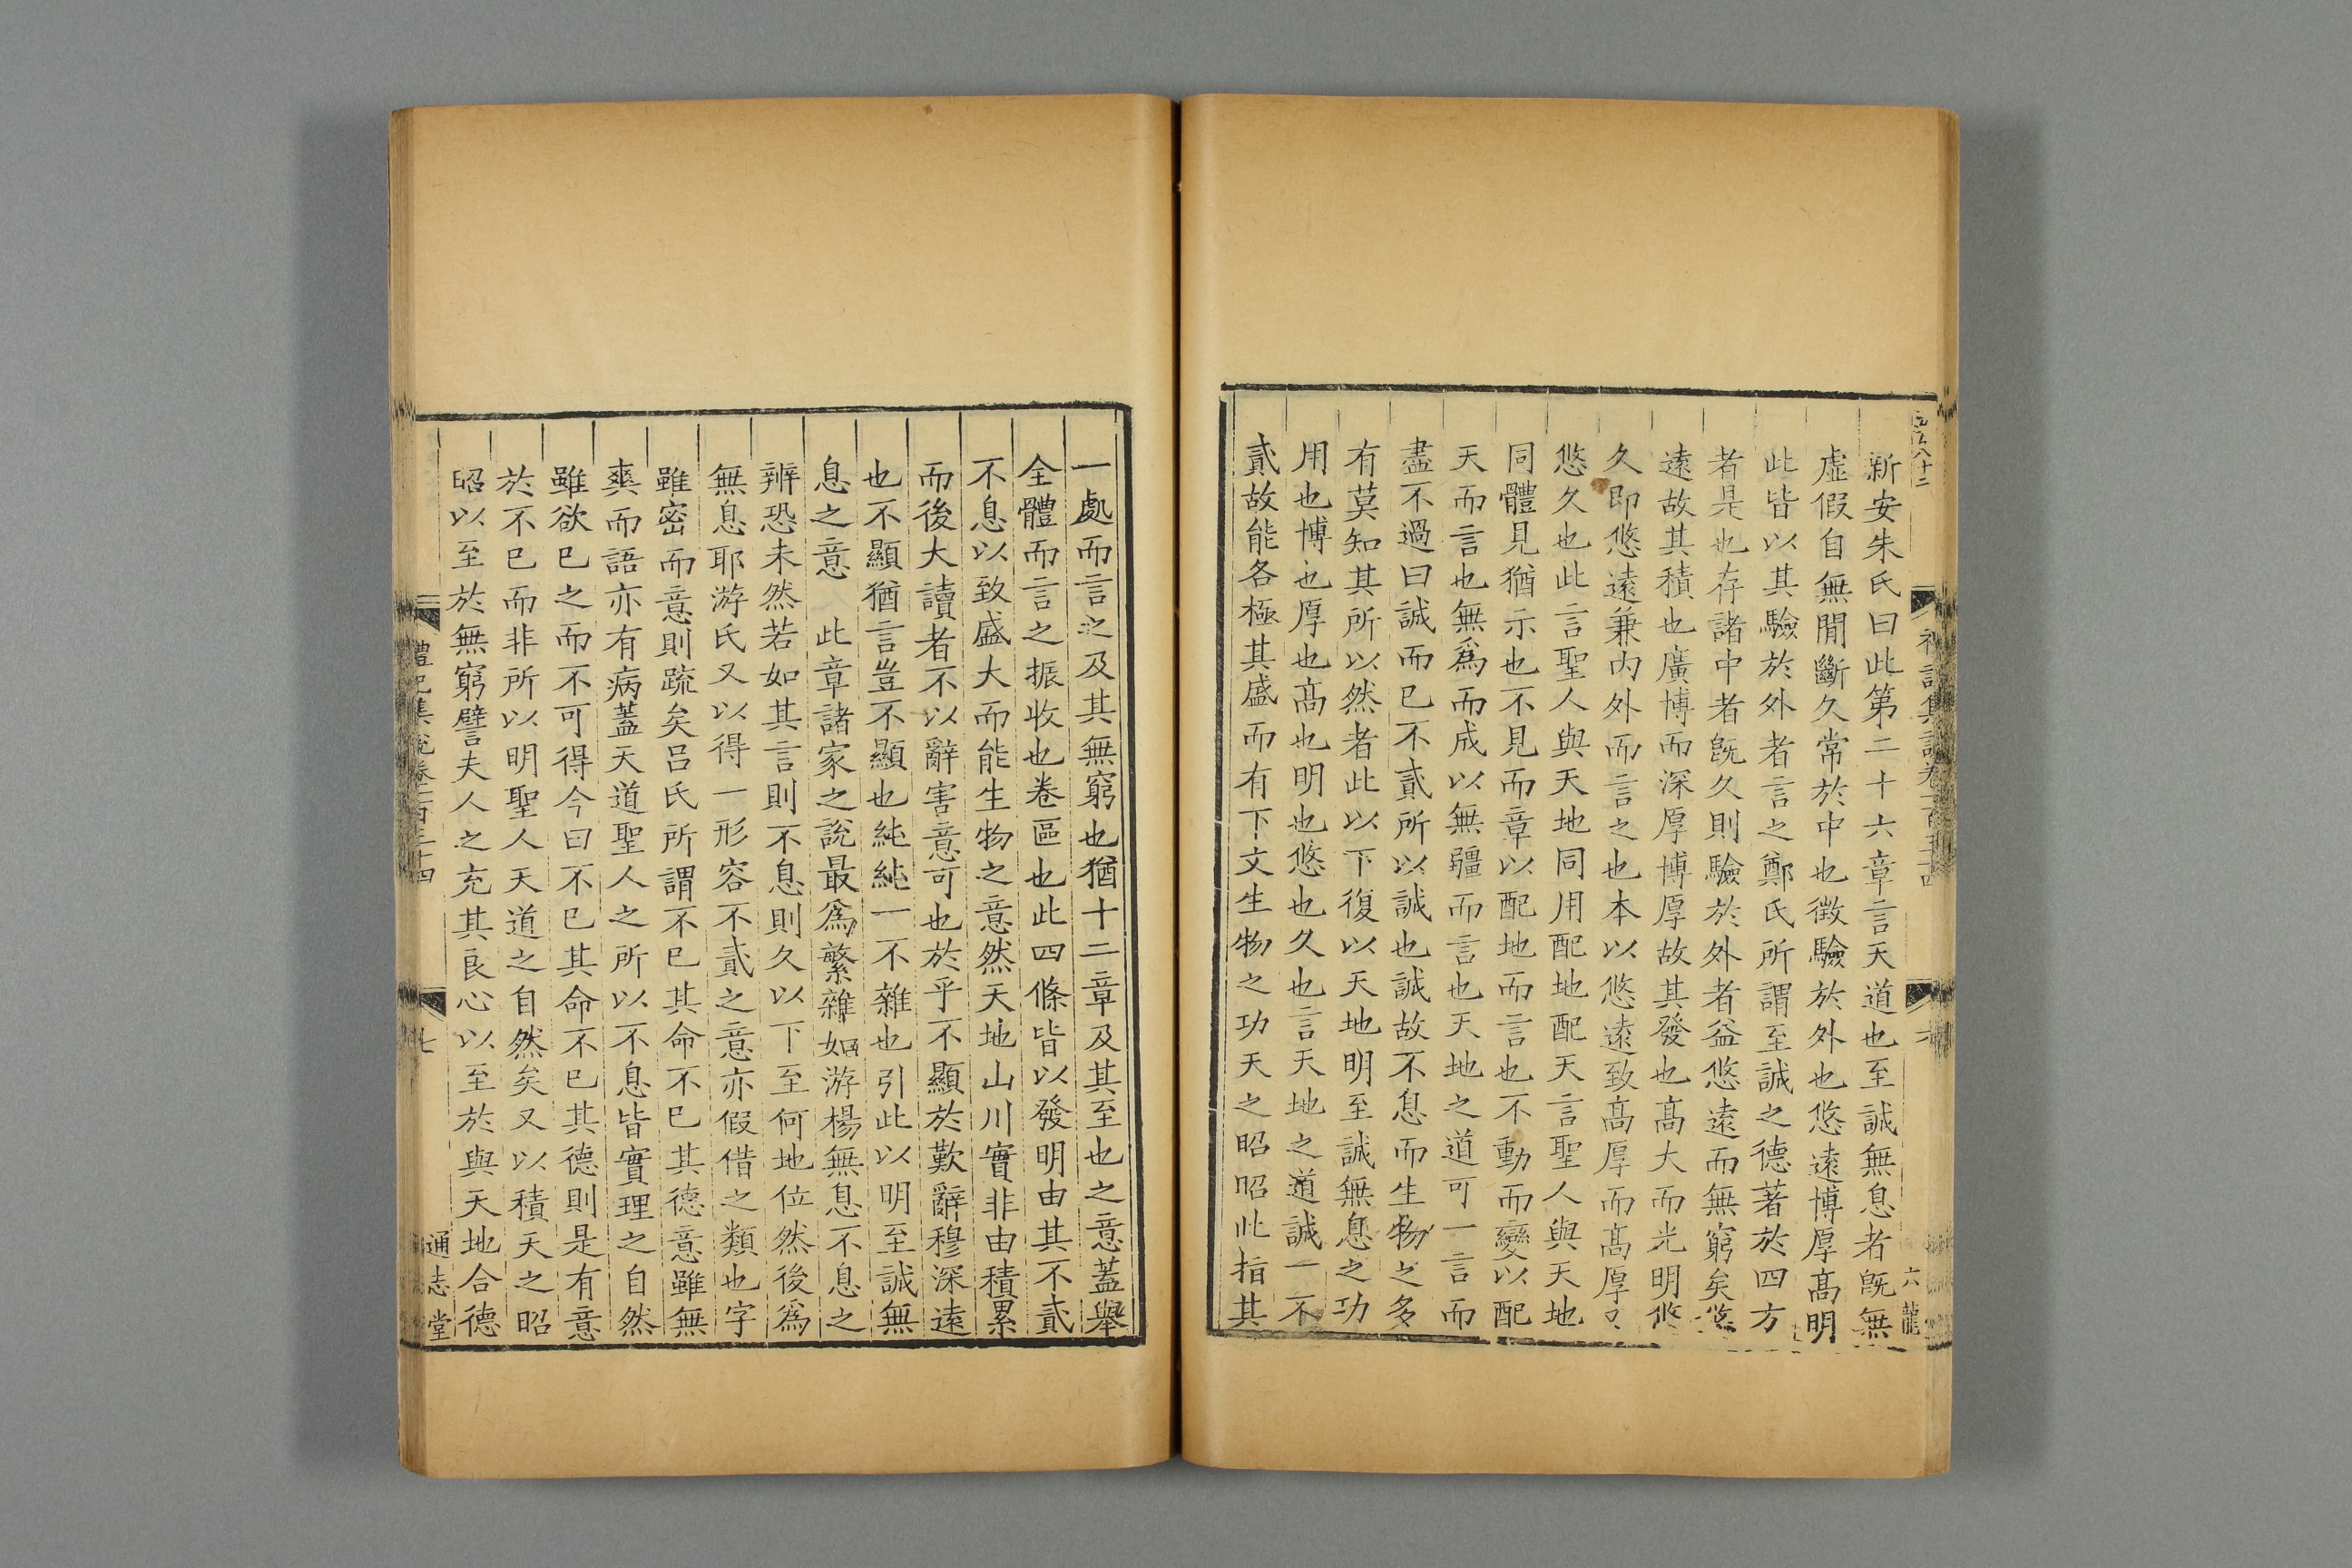 新安朱氏曰此第二十六章言天道也至誠無息者旣無
虛假自無閒斷久常於中也徵驗於外也悠遠博厚髙明
此皆以其驗於外者言之鄭氏所謂至誠之德著於四方
者是也存諸中者旣久則驗於外者益悠遠而無窮矣悠
遠故其積也廣博而深厚博厚故其發也髙大而光明悠
久即悠遠兼內外而言之也本以悠遠致髙厚而髙厚又
悠久也此言聖人與天地同用配地配天言聖人與天地
同體見猶示也不見而章以配地而言也不動而變以配
天而言也無爲而成以無疆而言也天地之道可一言而
盡不過曰誠而已不貳所以誠也誠故不息而生物之多
有莫知其所以然者此以下復以天地明至誠無息之功
用也博也厚也髙也明也悠也久也言天地之道誠一不
貳故能各極其盛而有下文生物之功天之昭昭此指其
六 龍
一處而言之及其無窮也猶十二章及其至也之意蓋舉
全體而言之振收也卷區也此四條皆以發明由其不貳
不息以致盛大而能生物之意然天地山川實非由積累
而後大讀者不以辭害意可也於乎不顯於歎辭穆深遠
也不顯猶言豈不顯也純純一不雜也引此以明至誠無
息之意　此章諸家之說最爲繁雜如游楊無息不息之
辨恐未然若如其言則不息則久以下至何地位然後爲
無息耶游氏又以得一形容不貳之意亦假借之類也字
雖密而意則疏矣呂氏所謂不已其命不已其德意雖無
爽而語亦有病蓋天道聖人之所以不息皆實理之自然
雖欲已之而不可得今曰不已其命不已其德則是有意
於不已而非所以明聖人天道之自然矣又以積天之昭
昭以至於無窮譬夫人之充其良心以至於與天地合德
禮記集說卷一百三十四
七
通志堂